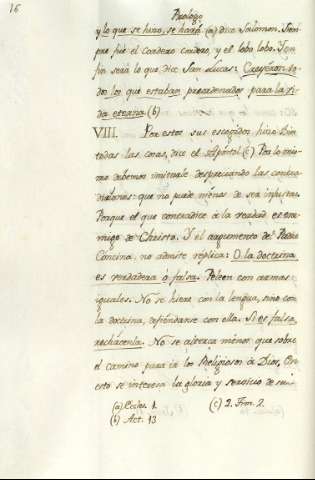 16
Prologo
y lo que se hizo, se hará (a) dice Salomon. Siem-
pre fué el cordero cordero, y el lobo lobo. Y en
fin será lo que dice San Lucas: Creyéron to-
dos los que estaban preordenados para la vi-
da eterna (b)
VIII. Por estos sus escogidos hizo Dios
todas las cosas, dice el Apóstol (c) Por lo mis-
mo debemos imitarle despreciando las contra-
dicciones: que no puede ménos de ser injustas.
Porque el que contradice á la verdad es ene-
migo de Christo. Y el argumento del Padre
Concina no admite réplica: O la doctrina
es verdadera ó falsa. Peleen con armas
iguales. No se hiera con la lengua, sino con
la doctrina, defiéndanse con ella. Si es falsa,
rechácenla. No se alterca ménos que sobre
el camino para ir los Religiosos á Dios, En
esto se interesa la gloria y servicio de su
(a) Eccles. 1. (c) 2. Tim. 2.
(b) Act. 13